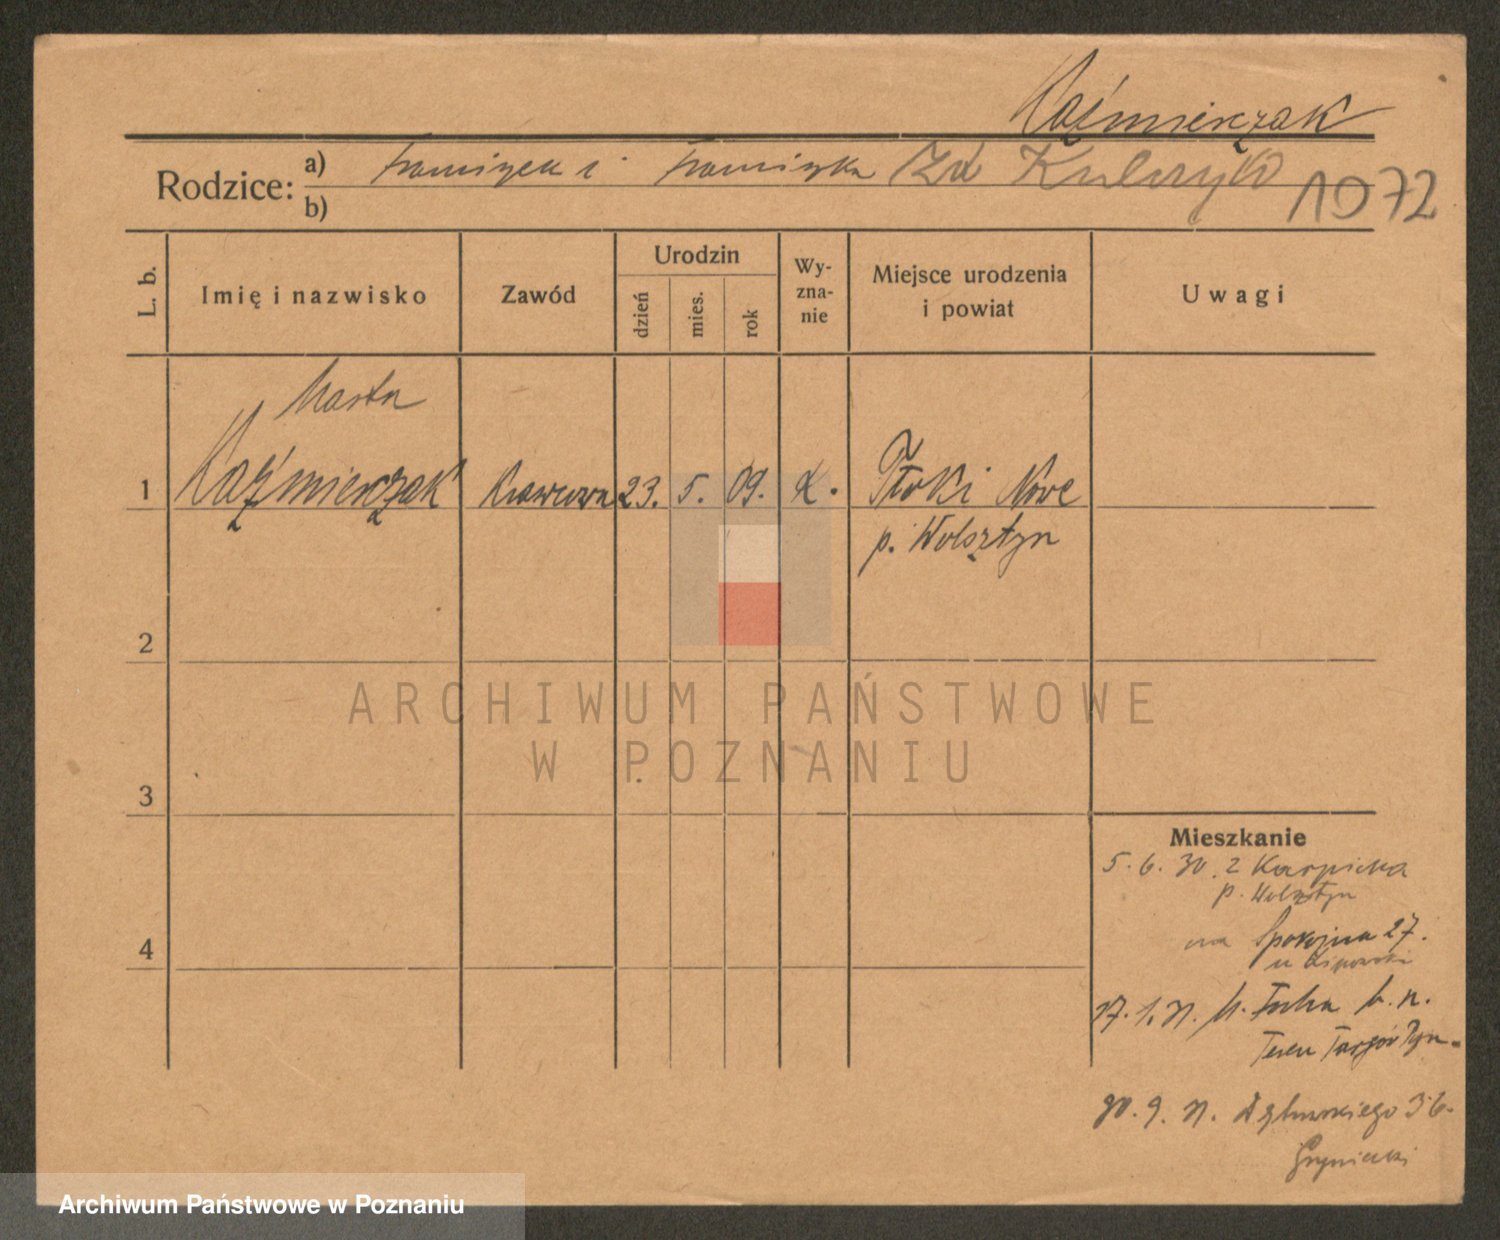 Kaźmierczak
Rodzice: a) Franciszek i Franciszka zd Kulczyk
b)
1072
L. b.
Imię i nazwisko
Zawód
Urodzin
dzień
mies.
rok
Wy-
zna-
nie
Miejsce urodzenia
i powiat
Uwagi
Marta
1 Kaźmierczak Krawcowa 23. 5. 09. K. Tłoki Nowe
p. Wolsztyn
2
3
4
ARCHIWUM PAŃSTWOWE
W POZNANIU
Mieszkanie
5. 6. 30. z Karpicka
p. Wolsztyn
na Spokojna 27.
u
17. 1. 31.
Teren Targów
30. 9. 31. 36.
Archiwum Państwowe w Poznaniu